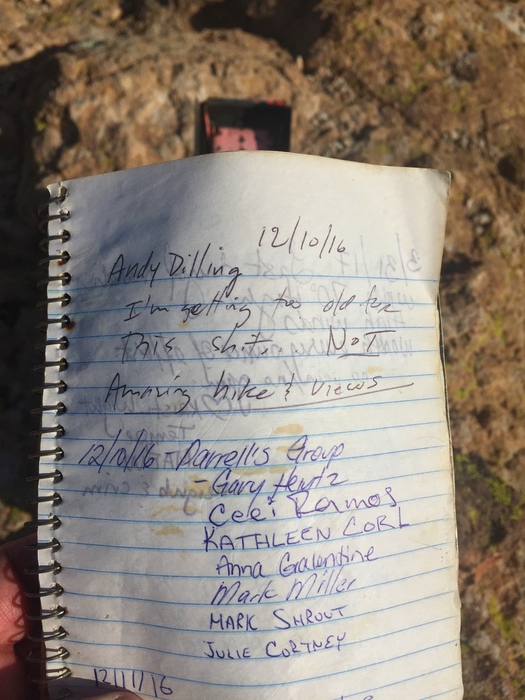 12/10/16
Andy Dilling
I'm getting too old for
This shit. NOT
Amazing hike & views
12/10/16 Darrells Group
- Gary Hertz
Ceci Ramos
KATHLEEN CORL
Anna Galentine
Mark Miller
MARK SHROUT
JULIE CORTNEY
12/11/16